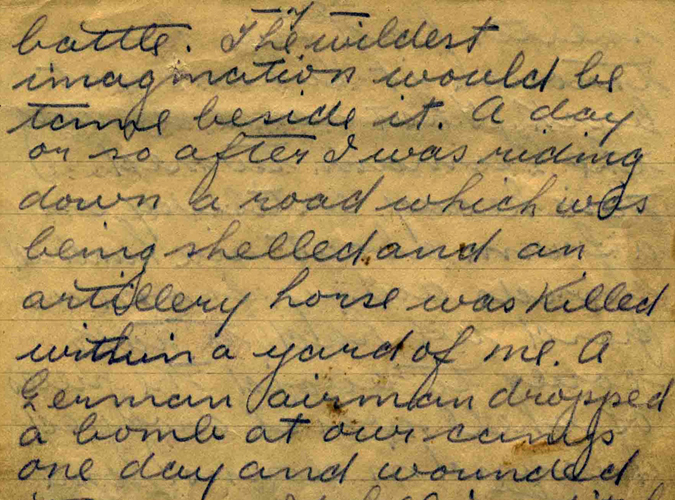 battle. The wildest
imagination would be
tame beside it. A day
or so after I was riding
down a road which was
being shelled and an
artillery horse was killed
within a yard of me. A
German airman dropped
a bomb at our camp
one day and wounded